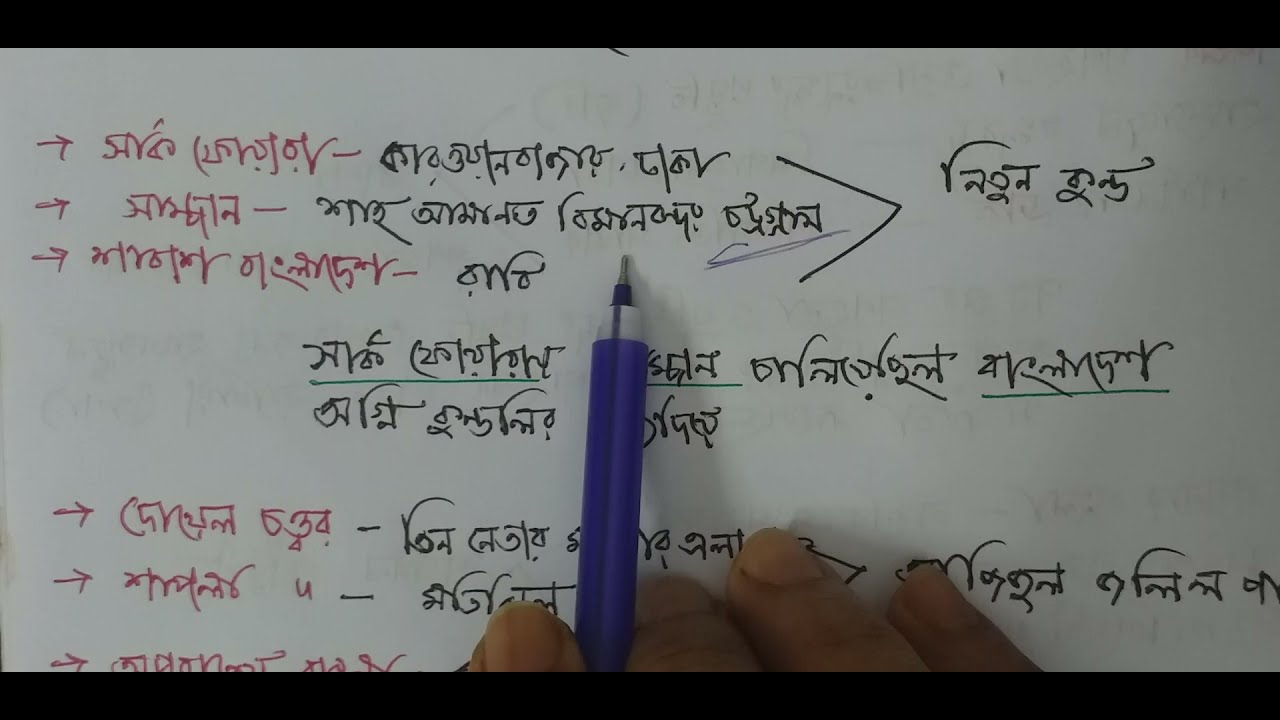 → সার্ক ফোয়ারা – কারওয়ানবাজার, ঢাকা
→ সাম্পান – শাহ আমানত বিমানবন্দর চট্টগ্রাম
→ শাবাশ বাংলাদেশ – রাবি
নিতুন কুন্ডু
সার্ক ফোয়ারায় চালিয়েছিল বাংলাদেশ
অগ্নি কুন্ডলির
→ দোয়েল চত্ত্বর – তিন নেতার
→ শাপলা " – মতিঝিল
জলিল